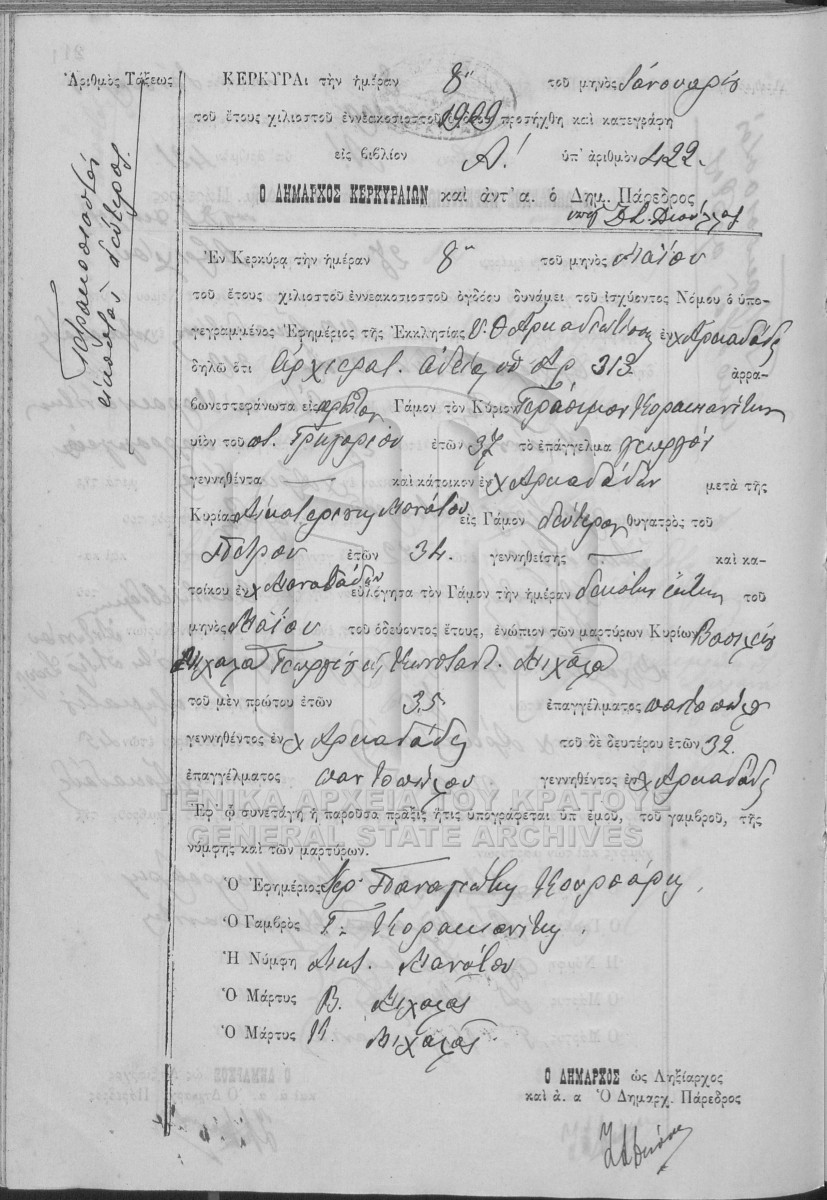 Ἀριθμὸς Τάξεως
Τετρακοσιοστὸς
εἰκοστὸς δεύτερος
ΚΕΡΚΥΡΑι τὴν ἡμέραν 8ην τοῦ μηνὸς Ἰανουαρίου
τοῦ ἔτους χιλιοστοῦ ἐννεακοσιοστοῦ 1909 προσήχθη καὶ κατεγράφη
εἰς βιβλίον Α! ὑπ' ἀριθμὸν 422.
Ο ΔΗΜΑΡΧΟΣ ΚΕΡΚΥΡΑΙΩΝ καὶ ἀντ' α. ὁ Δημ. Πάρεδρος
Ἐν Κερκύρᾳ τὴν ἡμέραν 8ην τοῦ μηνὸς Μαΐου
τοῦ ἔτους χιλιοστοῦ ἐννεακοσιοστοῦ ὀγδόου δυνάμει τοῦ ἰσχύοντος Νόμου ὁ ὑπο-
γεγραμμένος Ἐφημέριος τῆς Ἐκκλησίας Υ. Θ Ἀρκαδιωτίσης ἐν χ Ἀρκαδάδες
δηλῶ ὅτι Ἀρχιερατ. ἀδείᾳ ὑπ Ἀρ 313 ἀρρα-
βωνεστεφάνωσα εἰς πρῶτον Γάμον τὸν Κύριον Γεράσιμον Κορακιανίτην
υἱὸν τοῦ π. Γρηγορίου ἐτῶν 37 τὸ ἐπάγγελμα γεωργόν
γεννηθέντα — καὶ κάτοικον ἐν χ Ἀρκαδάδων μετὰ τῆς
Κυρίας Αἰκατερίνης Μανάτου εἰς Γάμον δεύτερον θυγατρὸς τοῦ
Πέτρου ἐτῶν 34. γεννηθείσης — καὶ κα-
τοίκου ἐν χ Μαναθάδων εὐλόγησα τὸν Γάμον τὴν ἡμέραν δεκάτην ἕκτην τοῦ
μηνὸς Μαΐου τοῦ ὁδεύοντος ἔτους, ἐνώπιον τῶν μαρτύρων Κυρίων Βασιλείου
Μιχαλᾶ Γεωργίου, Κωνσταντ. Μιχαλᾶ
τοῦ μὲν πρώτου ἐτῶν 35 ἐπαγγέλματος παντοπώλου
γεννηθέντος ἐν χ Ἀρκαδάδες τοῦ δὲ δευτέρου ἐτῶν 32.
ἐπαγγέλματος παντοπώλου γεννηθέντος ἐν χ Ἀρκαδάδες
ΓΕΝΙΚΑ ΑΡΧΕΙΑ ΤΟΥ ΚΡΑΤΟΥΣ
Ἐφ' ᾧ συνετάγη ἡ παροῦσα πρᾶξις ἥτις ὑπογράφεται ὑπ' ἐμοῦ, τοῦ γαμβροῦ, τῆς
GENERAL STATE ARCHIVES
νύμφης καὶ τῶν μαρτύρων.
Ὁ Ἐφημέριος Ἱερ. Παναγιώτης Κουρσάρης
Ὁ Γαμβρὸς Γ. Κορακιανίτης
Ἡ Νύμφη Αικ. Μανάτου
Ὁ Μάρτυς Β. Μιχαλᾶς
Ὁ Μάρτυς Κ. Μιχαλᾶς
Ο ΔΗΜΑΡΧΟΣ ὡς Ληξίαρχος
καὶ ἀ. α Ὁ Δημαρχ. Πάρεδρος